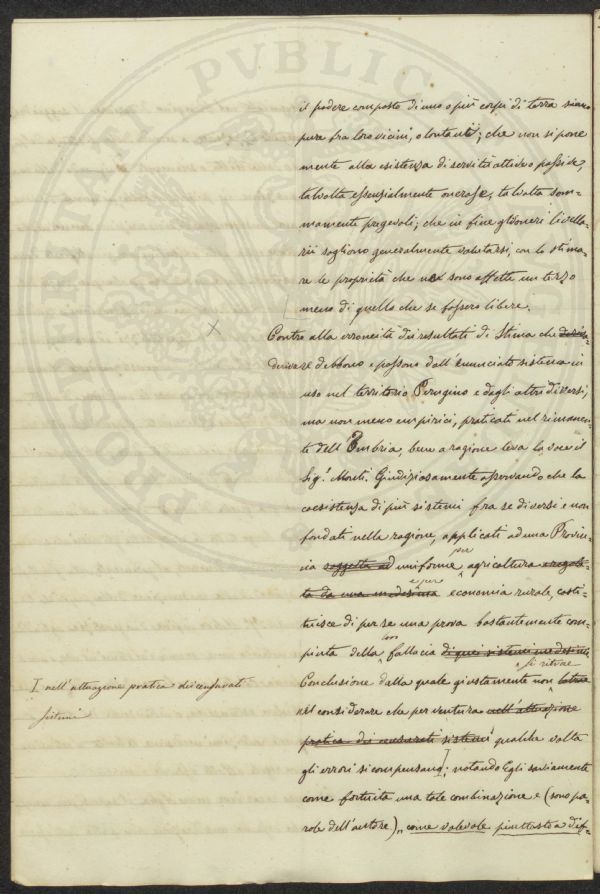 il podere composto di uno o più corpi di terra siano
pure fra loro vicini, o lontani; che non si pone
mente alla esistenza di servitù attive o passive,
talvolta essenzialmente onerose, talvolta som-
mamente pregevoli; che in fine gli oneri livella-
rii sogliono generalmente valutarsi, con lo stima-
re le proprietà che ne sono affette un terzo
meno di quello che se fossero libere.
Contro alla erroneità dei resultati di Stima che
derivare debbono e possono dall'enunciato sistema in
uso nel territorio Perugino e dagli altri diversi,
ma non meno empirici, praticati nel rimanen-
te dell'Umbria, bene a ragione leva la voce il
Sig.r Monti. Giudiziosamente osservando che la
coesistenza di più sistemi fra se diversi e non
fondati nella ragione, applicati ad una Provin-
cia soggetta ad uniforme per agricoltura e regola-
ta da una medesima e per economia rurale, costi-
tuisce di per se una prova bastantemente com-
pinta della loro fallacia di quei sistemi medesimi
Conclusione dalla quale giustamente non si ritrae
nel considerare che per ventura nell'attuazione
pratica dei censurati sistemi qualche volta
gli errori si compensano; notando Egli saviamente
come fortuita una tale combinazione e (sono pa-
role dell'autore) „ come valevole piuttosto a dif-
I nell'attuazione pratica dei censurati
sistemi
PROSPERITATI PUBLICAE